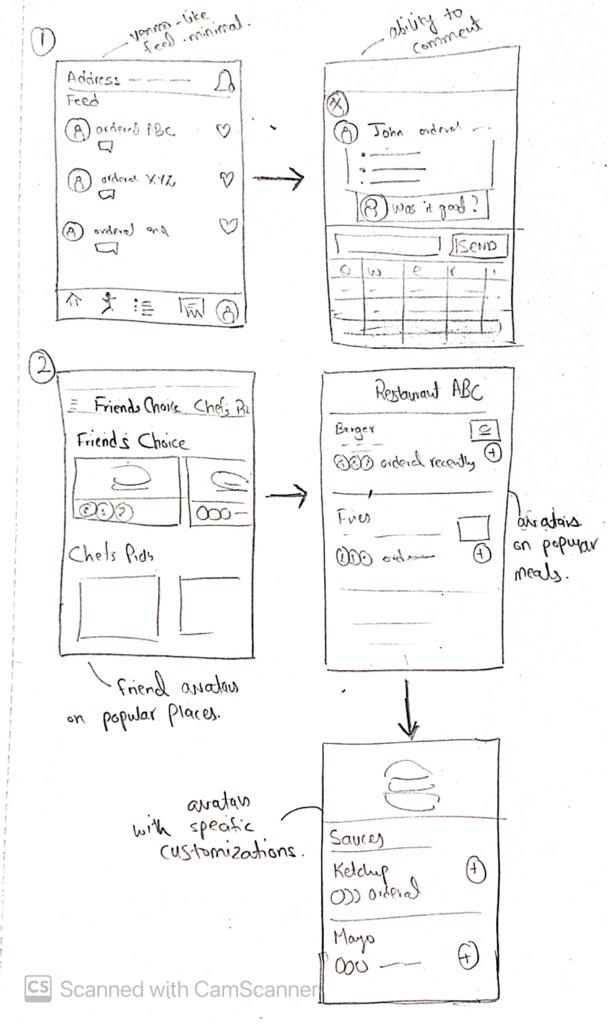 1
venmo-like
feed. minimal.
Address
Feed
ordered ABC
ordered XYZ
ordered
ability to
comment
X
John ordered
Was it good?
SEND
Q W E R
2
Friends Choice Chefs Pi
Friend's Choice
Chefs Picks
friend avatars
on popular places.
Restaurant ABC
Burger
ordered recently
+
Fries
+
avatars
on popular
meals.
avatars
with specific
customizations.
Sauces
Ketchup
+
ordered
Mayo
+
CS Scanned with CamScanner